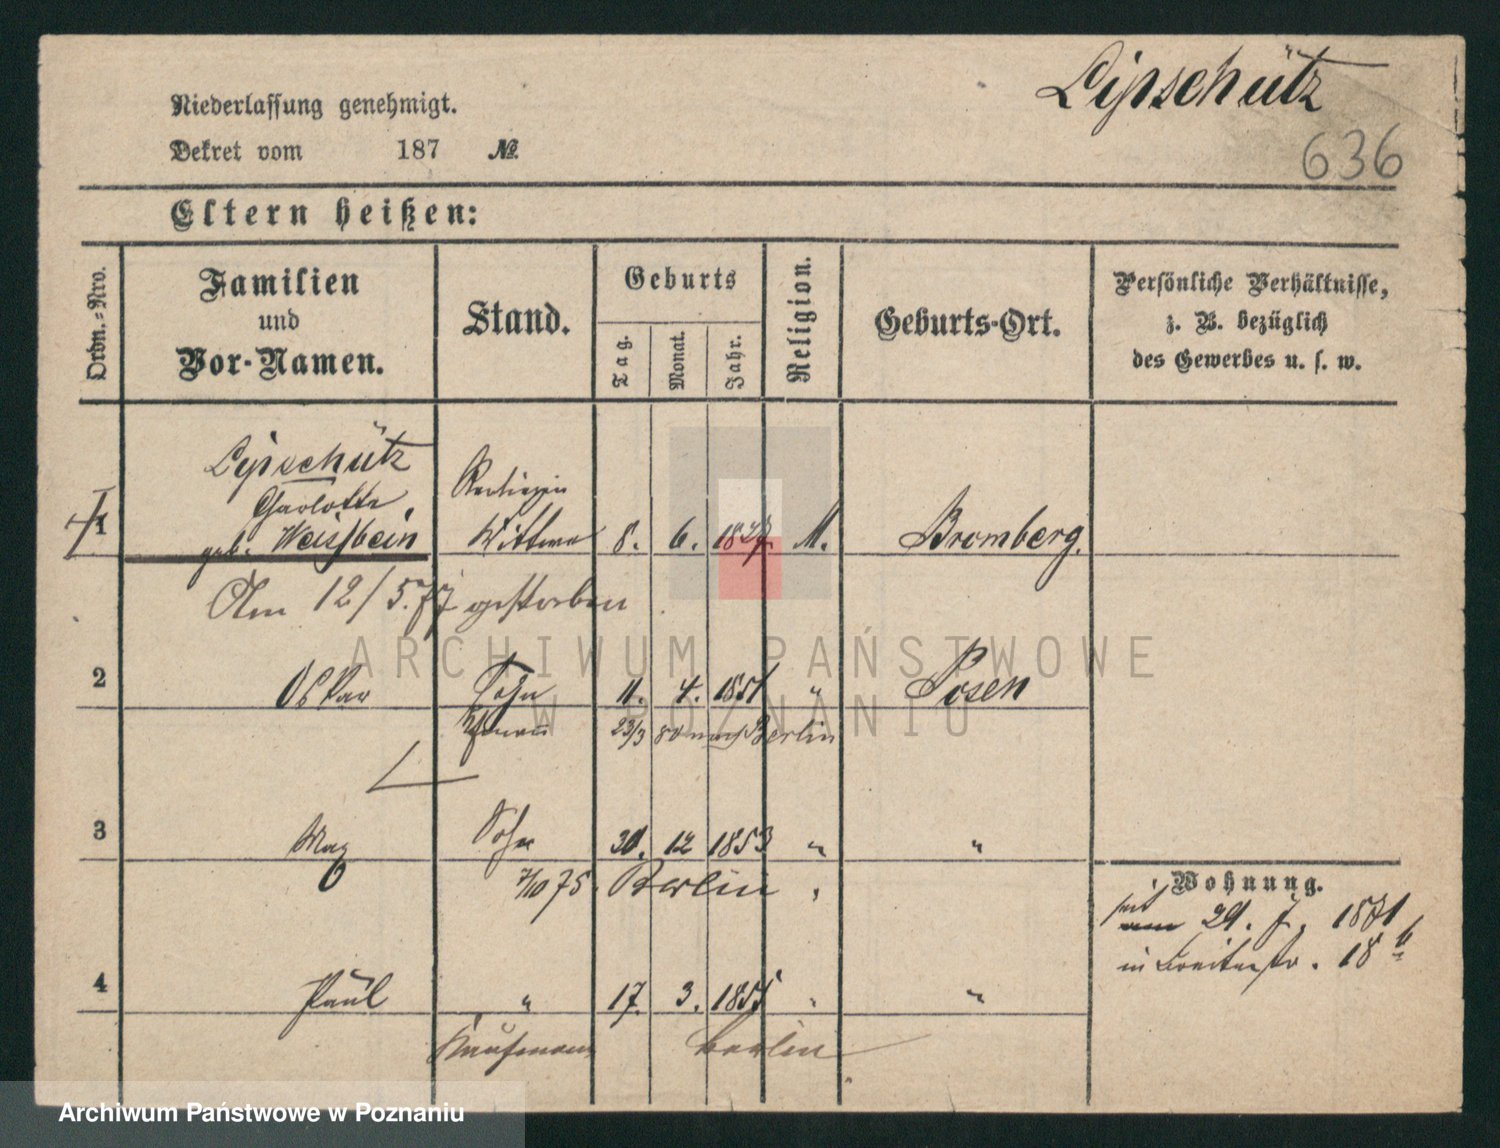 Lipschütz
636
Niederlassung genehmigt.
Dekret vom 187 №
Eltern heißen:
Ordn.-Nro.
Familien
und
Vor-Namen.
Stand.
Geburts
Tag.
Monat.
Jahr.
Religion.
Geburts-Ort.
Persönliche Verhältnisse,
z. B. bezüglich
des Gewerbes u. s. w.
Lipschütz
Charlotte,
1 geb. Weissbein Wittwe 8. 6. M. Bromberg.
Am 12/5.77 gestorben
2 Oskar Sohn 11. 4. 1851 " Posen
23/3 80 nach Berlin
3 Max Sohn 30. 12 1853 " "
7/10 75. Berlin
Wohnung.
29. 7. 1871
in Breitestr. 18 b
4 Paul " 17. 3. 1855 " "
Kaufmann Berlin
ARCHIWUM PAŃSTWOWE
W POZNANIU
Archiwum Państwowe w Poznaniu